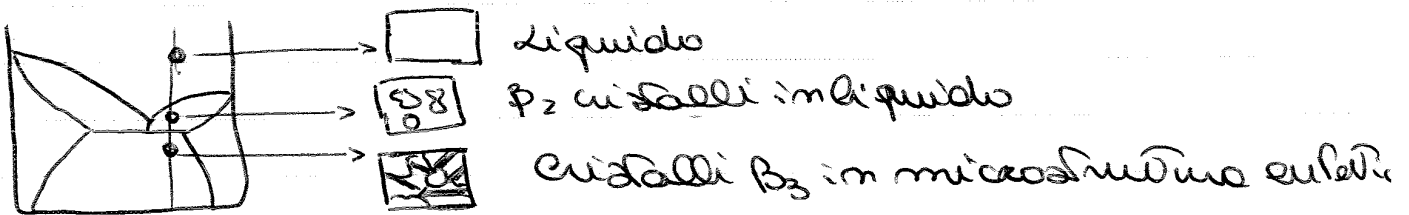 Liquido
β₂ cristalli in liquido
Cristalli β₃ in microstruttura